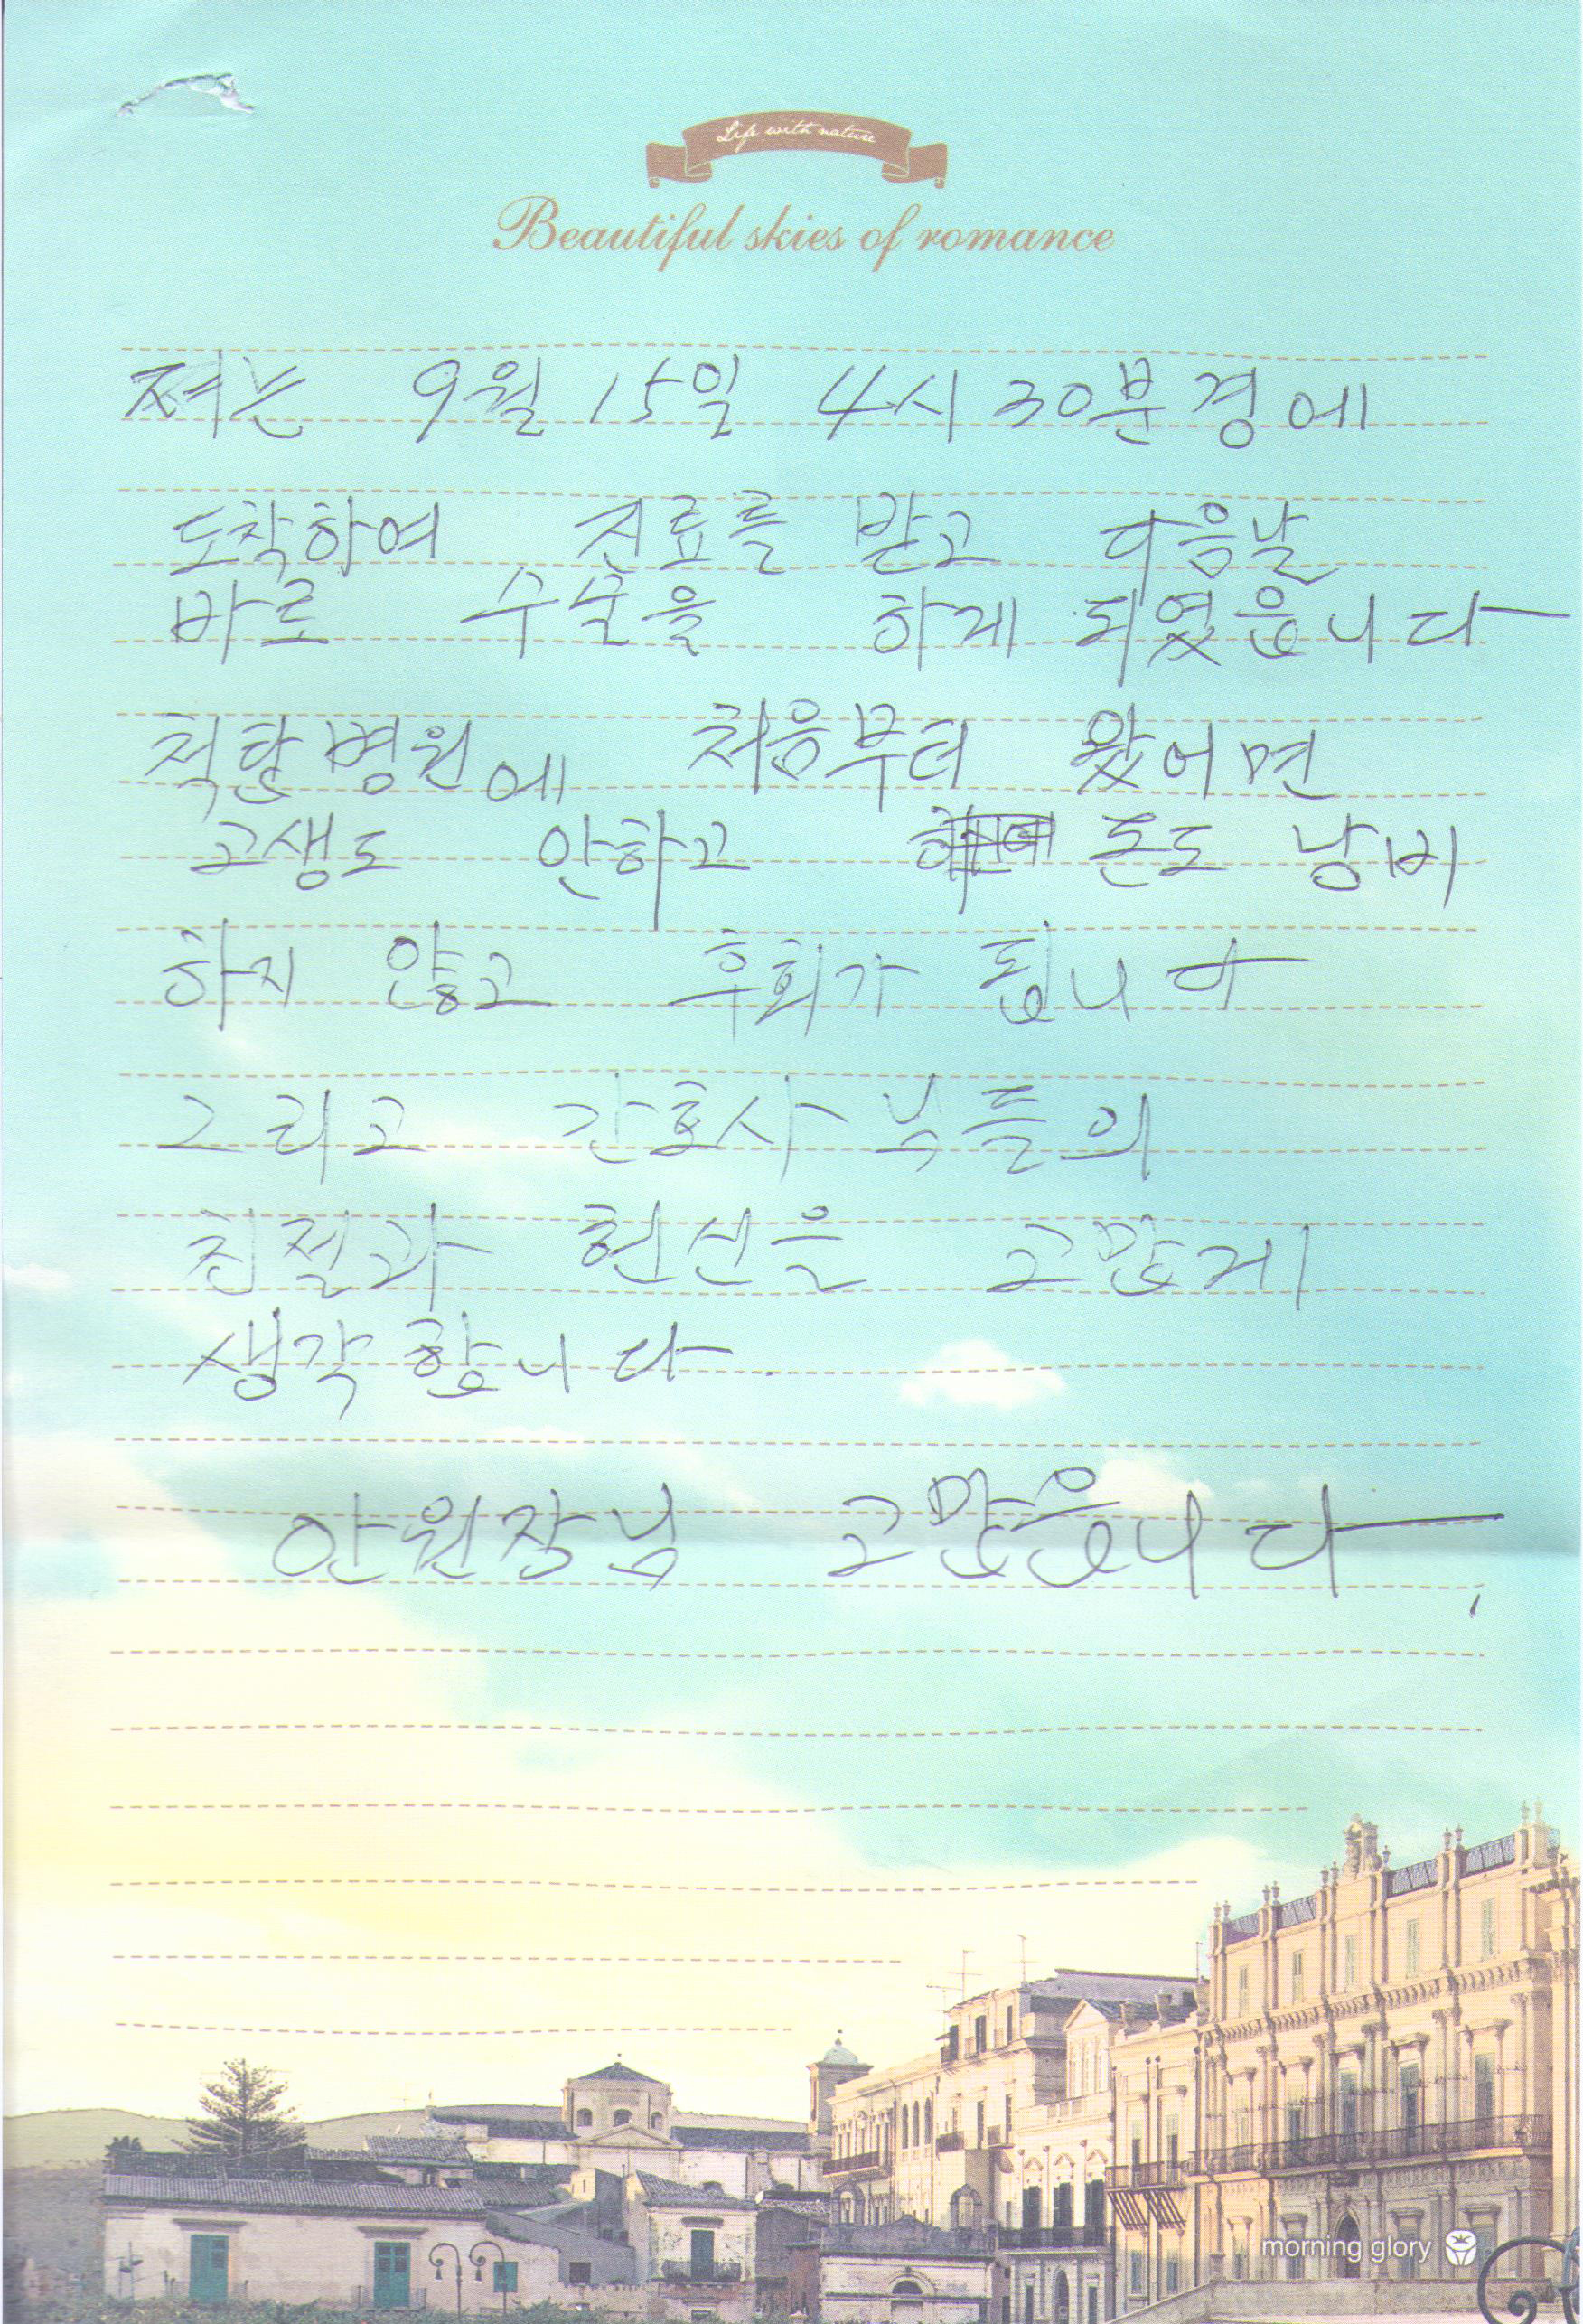 Life with nature
Beautiful skies of romance
저는 9월 15일 4시 30분경에
도착하여 진료를 받고 다음날
바로 수술을 하게 되였읍니다
척항병원에 처음부터 왔어면
고생도 안하고 돈도 낭비
하지 않고 후회가 됩니다
그리고 간호사님들의
친절과 헌신을 고맙게
생각합니다.
안원장님 고맙읍니다,
morning glory